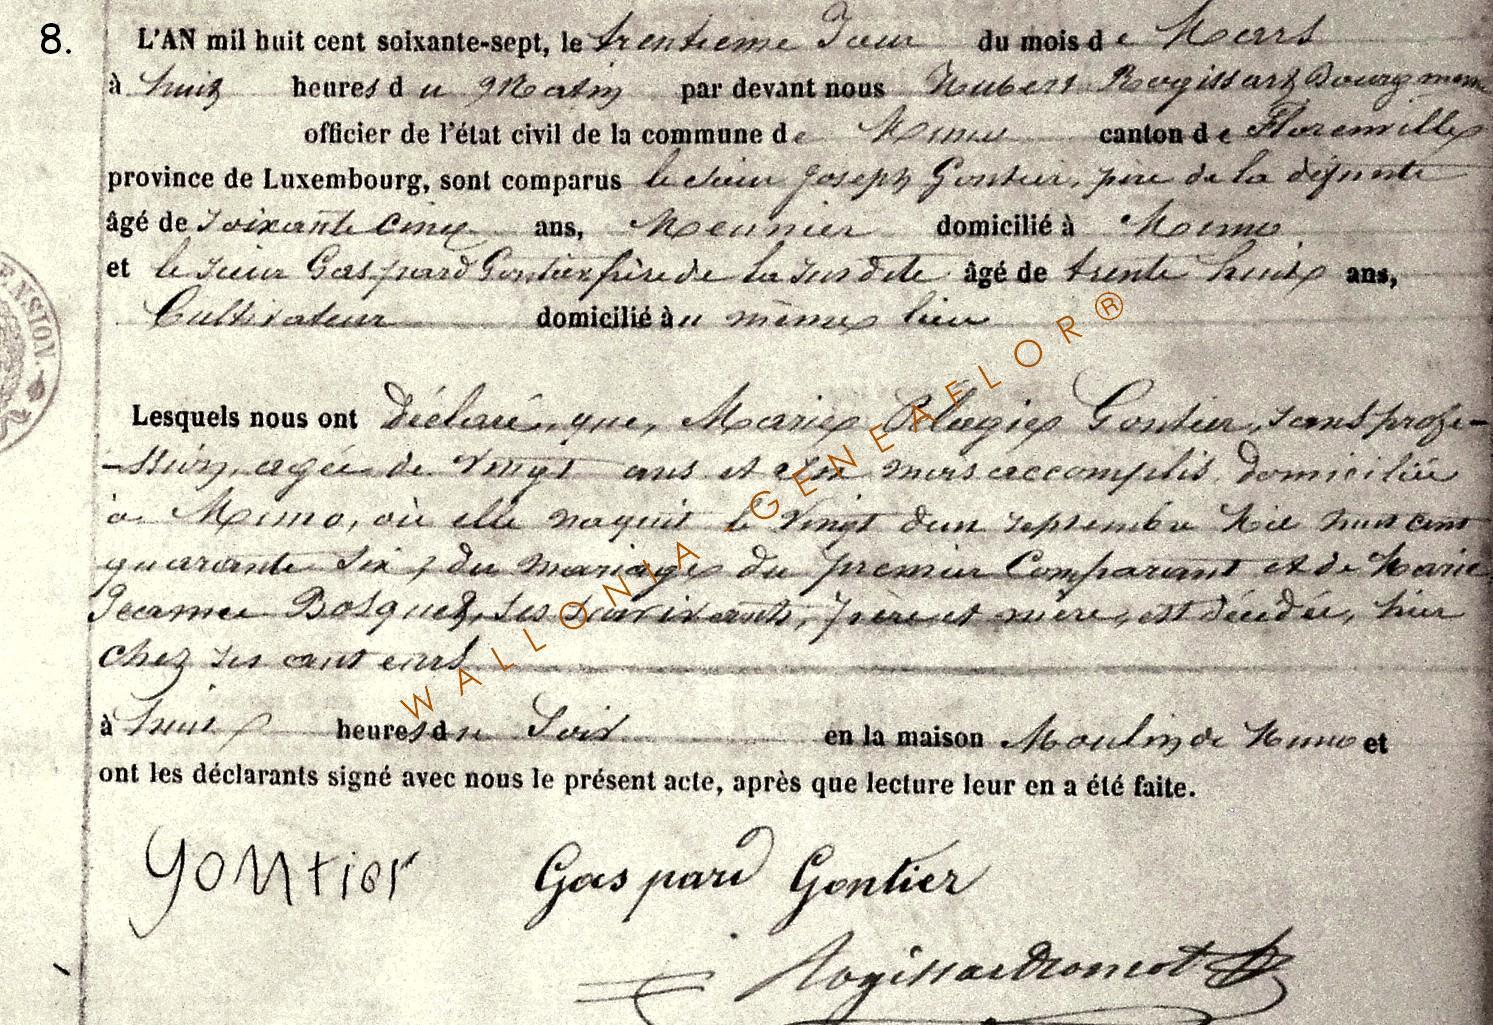 8.
L'AN mil huit cent soixante-sept, le trentième Jour du mois de Mars
à huit heures du Matin par devant nous Hubert Rogissart Bourgmem
officier de l'état civil de la commune de Muno canton de Florenville
province de Luxembourg, sont comparus le sieur Joseph Gontier, père de la défunte
âgé de soixante cinq ans, Meunier domicilié à Muno
et le sieur Gaspard Gontier frère de la susdite âgé de trente huit ans,
Cultivateur domicilié au même lieu
ENSION.
Lesquels nous ont déclaré, que, Marie Pélagie Gontier, sans profe-
-ssion, agée de vingt ans et six mois accomplis, domiciliée
à Muno, où elle naquit le vingt d'un septembre Mil huit cent
quarante six, du mariage du premier Comparant et de Marie
Jeanne Bosquet, ses survivants, père et mère, est décédée, hier
chez ses auteurs
à huit heures du Soir en la maison Moulin de Muno et
ont les déclarants signé avec nous le présent acte, après que lecture leur en a été faite.
gontier Gaspard Gontier
WALLONIA - GENEAFLOR®